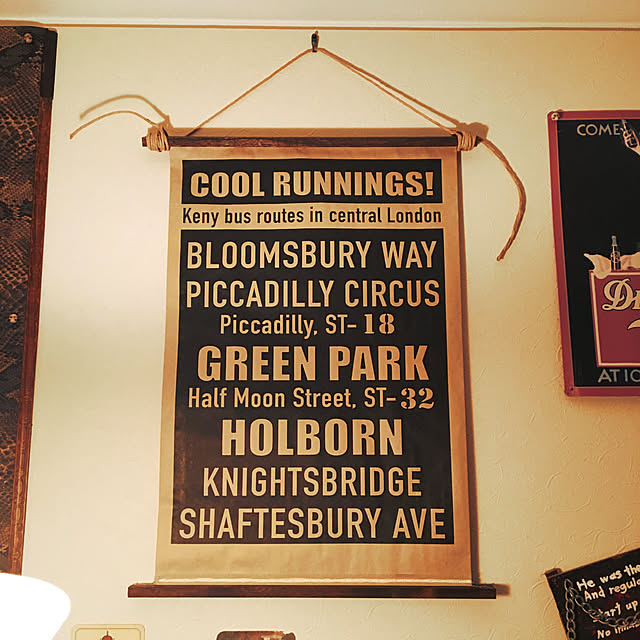 COOL RUNNINGS!
Keny bus routes in central London
BLOOMSBURY WAY
PICCADILLY CIRCUS
Piccadilly, ST-18
GREEN PARK
Half Moon Street, ST-32
HOLBORN
KNIGHTSBRIDGE
SHAFTESBURY AVE
COME
AT 10
He was the
And regul
art up
No